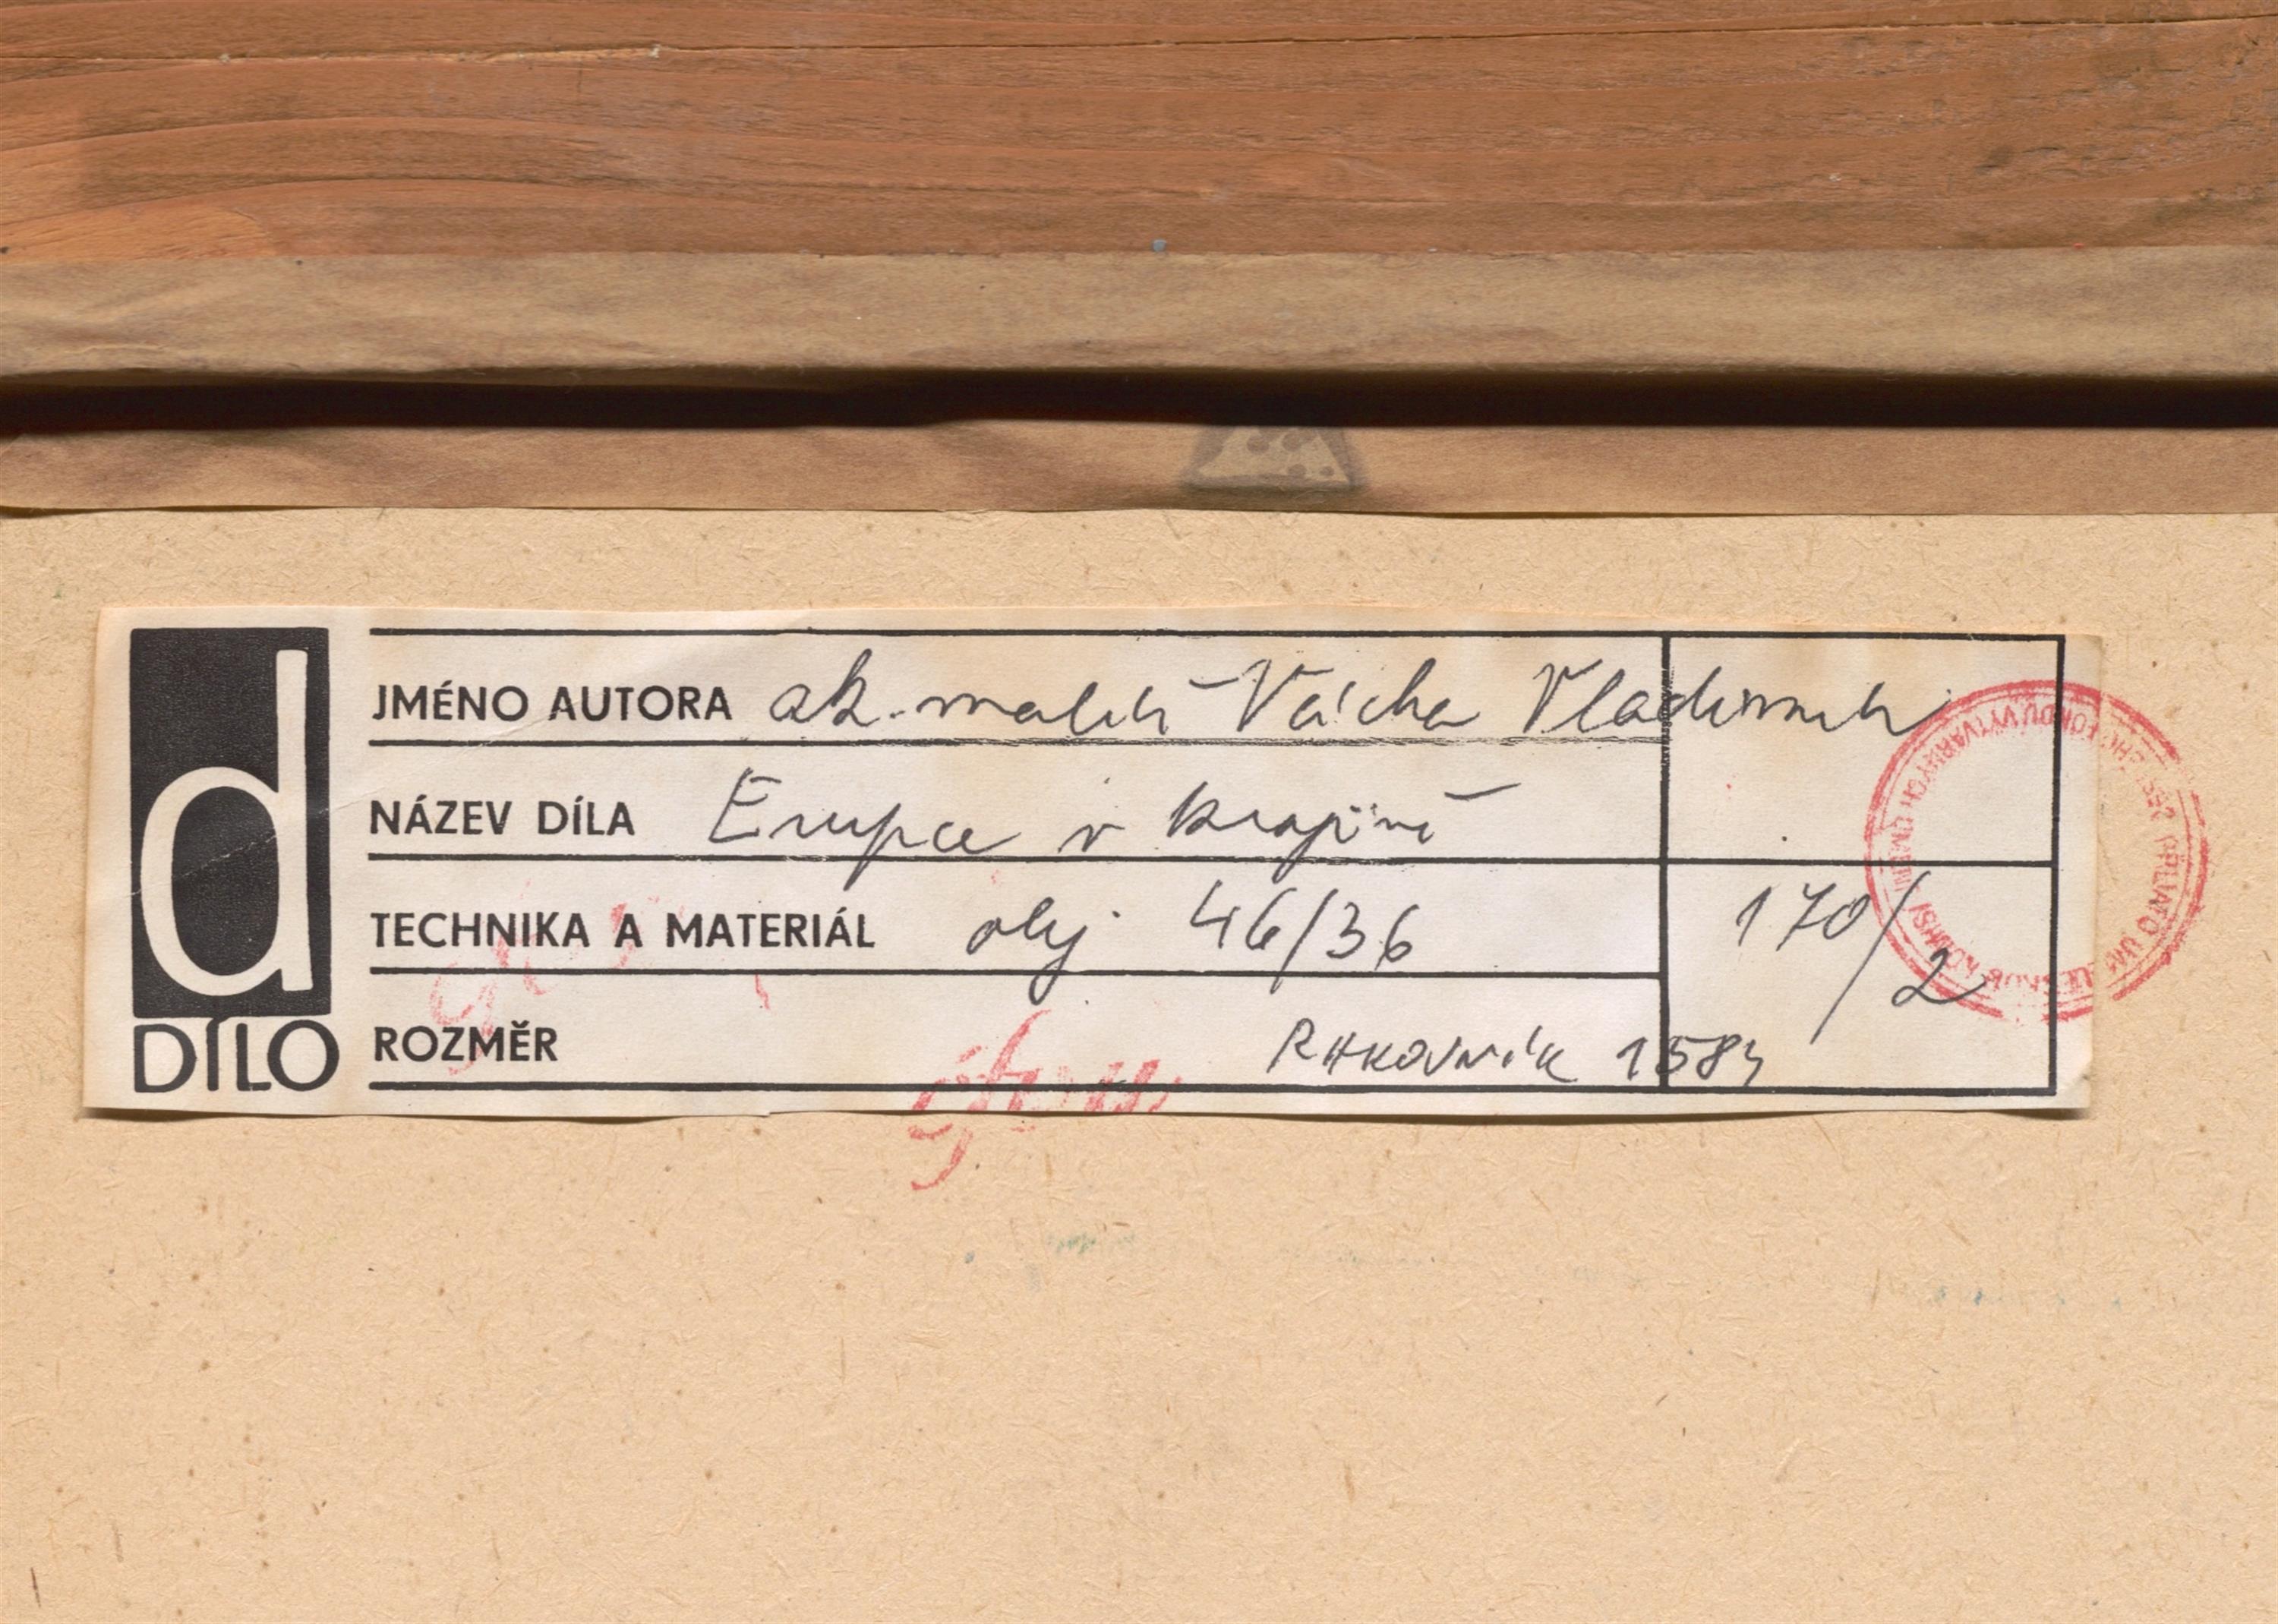 d
DÍLO
JMÉNO AUTORA ak. malíř Vácha Vladimír
NÁZEV DÍLA Erupce v krajině
TECHNIKA A MATERIÁL olej 46/36
170/2
ROZMĚR Rakovník 1584
FONDU VÝTVARNÝCH UMĚNÍ